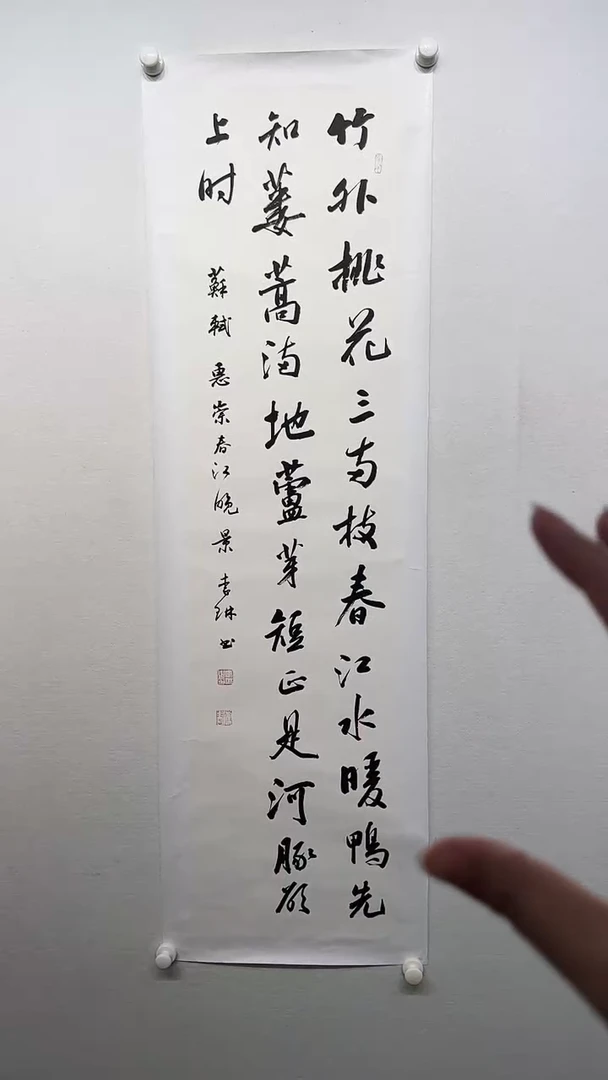 竹外桃花三两枝春江水暖鴨先
知蒌蒿满地蘆芽短正是河豚欲
上时
蘇軾惠崇春江晚景李琳书